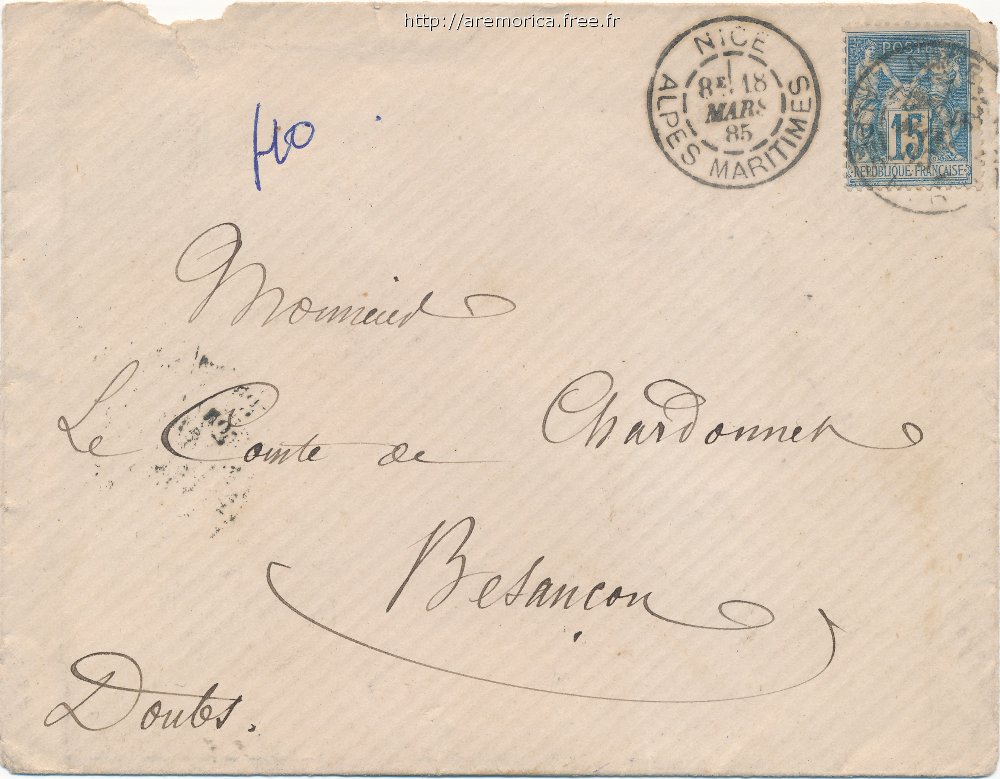 http://aremorica.free.fr
NICE
8E 18
MARS
85
ALPES MARITIMES
POSTES
15
REPUBLIQUE FRANÇAISE
Monsieur
Le Comte de Chardonnet
Besançon
Doubs.